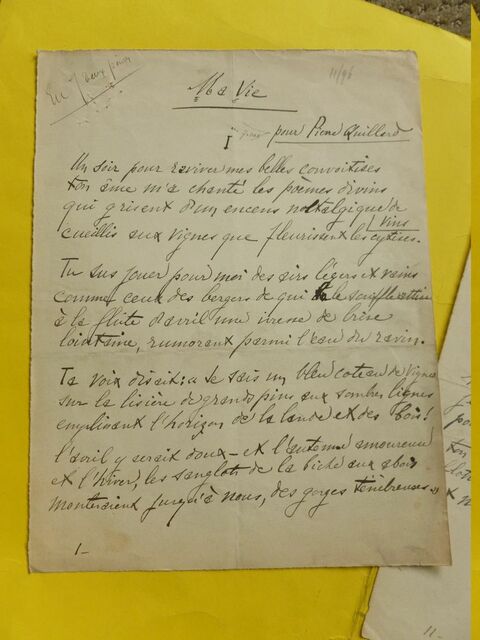 11/96
Ma Vie
I
pour Pierre Quillard
Un soir pour raviver mes belles convoitises
ton âme m'a chanté les poèmes divins
qui grisent d'un encens nostalgique de
vins
cueillis aux vignes que fleurissent les cytises.
Tu sus jouer pour moi des airs légers et vains
comme ceux des bergers de qui le souffle attise
à la flûte d'avril une ivresse de brise
lointaine, rumorant parmi l'eau du ravin.
Ta voix disait : « Je sais un bleu coteau de Vignes
sur la lisière de grands pins aux sombres lignes
emplissant l'horizon de la lande et des bois !
l'avril y serait doux – et l'automne amoureuse
et l'hiver, les sanglots de la biche aux abois
monteraient jusqu'à nous, des gorges ténébreuses »
1–
ton
11-